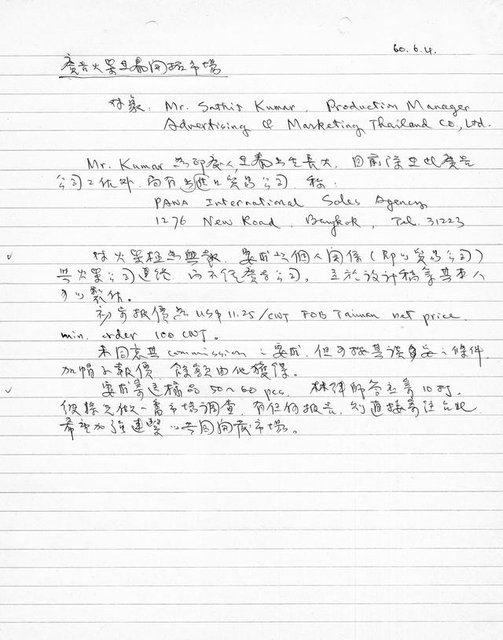 60.6.4.
廣告火柴至泰國拓市場
對象: Mr. Sathit Kumar, Production Manager
Advertising & Marketing Thailand Co., Ltd.
Mr. Kumar 為印度人, 泰出生長大, 目前除在此廣告
公司工作外, 尚有出進口貿易公司, 稱:
PANA International Sales Agency
1276 New Road, Bangkok, Tel. 31223
對火柴極為興趣, 要求以個人關係 (即以貿易公司)
與火柴公司連絡, 而不經廣告公司。至於設計稿亦其本人
可以製作。
初步報價為 US$ 11.25/CWT FOB Taiwan net price.
min. order 100 CWT.
未同意其 commission 之要求, 但可按其
加帽子報價, 餘款由他獲得。
要求寄送樣品 50~60 pcs. 林律師答應寄10封,
做一番市場調查, 有任何報告, 則直接寄往台北
希望加強連繫以共同開拓市場。